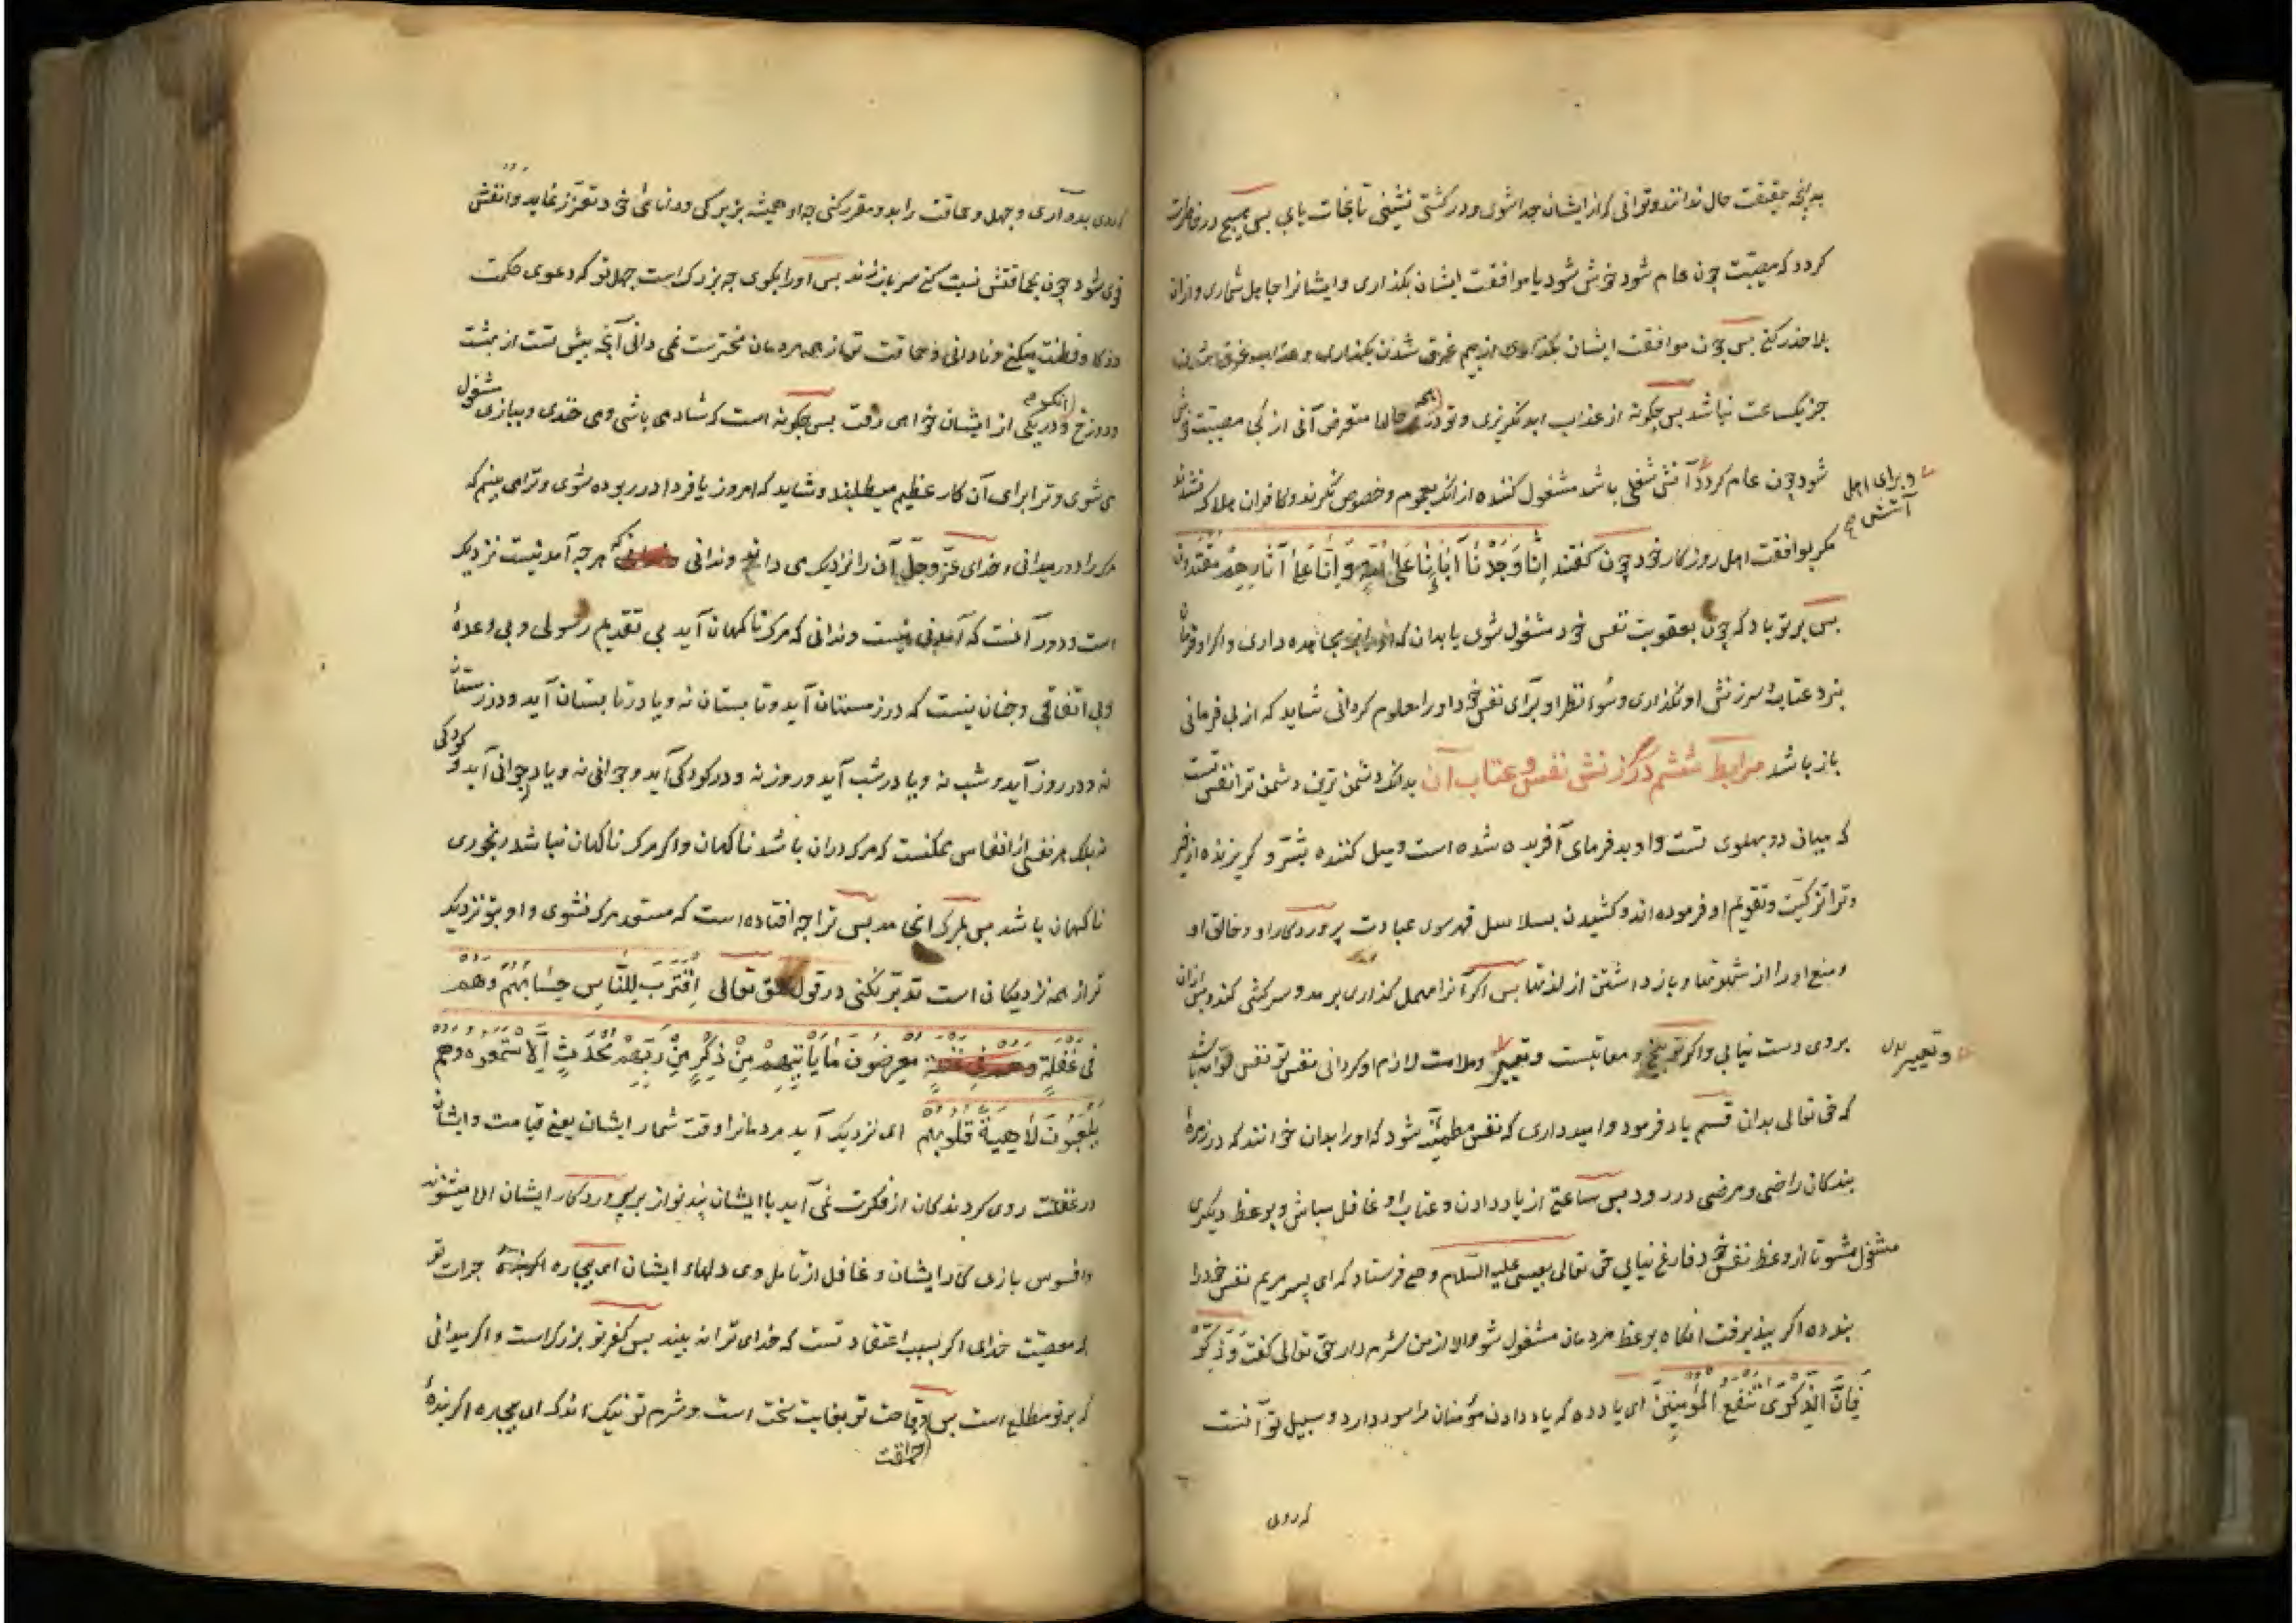 بدانچه حقیقت حال ندانند و توانی که از ایشان جدا شوی و در کشتی نشینی تا نجات یابی بس هیچ در خاطرت
کردد که مصیبت چون عام شود خوش شود یا موافقت ایشان بکذاری و ایشانرا جاهل شماری و ازان
بلا حذر کنی بس چون موافقت ایشان بکذاری از بیم غرق شدن بکذاری و عذاب غرق ایشان
جز یکساعت نباشد بس چکونه از عذاب ابد نکریزی و تو در همه حالها متعرض آنی از کجا مصیبت خوش
شود چون عام کردد آتش شغلی باشد مشغول کننده از انکه بعموم و خصوص نکرند و کافران هلاک نشدند
و برای اهل
آتش صح
مکر بموافقت اهل روزکار خود چون کفتند اِنّا وَجَدْنا آبائَنا عَلی اُمَّةٍ وَ اِنّا عَلی آثارِهِمْ مُقْتَدُون
بس بر تو باد که چون بعقوبت نفس خود مشغول شوی یا بدان که او را بمجاهده داری و اکر او فرمان
نبرد عتاب و سرزنش او نکذاری و سوء نظر او برای نفس خود او را معلوم کردانی شاید که از بی فرمانی
باز باشد مرابط ششم در سرزنش نفس و عتاب آن بدانکه دشمن ترین دشمن ترا نفس تست
که میان دو بهلوی تست و او بد فرمای آفریده شده است و میل کننده بشر و کریزنده از خیر
و ترا تزکیت و تقویم او فرموده اند و کشیدن بسلاسل قهر سوی عبادت پروردکار او و خالق او
و منع او را از شهوتها و باز داشتن از لذتها بس اکر آنرا مهمل کذاری برمد و سرکشی کند و بس ازان
بروی دست نیابی و اکر توبیخ و معاتبت و تعییر و ملامت لازم او کردانی نفس تو نفس لوامه باشد
و تعییر
که حق تعالی بدان قسم یاد فرمود و امید داری که نفس مطمئنه شود که او را بدان خوانند که در زمرهٔ
بندکان راضی و مرضی در رود بس ساعتی از یاد دادن و عتاب او غافل مباش و بوعظ دیکری
مشغول مشو تا از وعظ نفس خود فارغ نیابی حق تعالی بعیسی علیه السلام وحی فرستاد که ای پسر مریم نفس خود را
پند ده اکر پند پذیرفت انکاه بوعظ مردمان مشغول شو والا از من شرم دار حق تعالی کفت وَذَکِّرْ
فَاِنَّ الذِّکْرَی تَنْفَعُ الْمُؤْمِنِین ای یاد ده که یاد دادن مؤمنان را سود دارد و سبیل تو آنست
که روی
که روی بدو آری و جهل و حماقت را بدو مقرر کنی چه او همیشه بزیرکی و دانائی خود تعزز نماید و انفش
قوی شود چون بحماقتش نسبت کنی سر باز زند بس او را بکوی چه بزرک است جهل تو که دعوی حکمت
و ذکا و فطنت میکنی و نادانی و حماقت تو از همه مردمان بیشتر نمی دانی آنچه بیش تست از بهشت
و دوزخ و در یکی از ایشان خواهی رفت بس چکونه است که شاد می باشی و می خندی و ببازی مشغول
می شوی و ترا برای آن کار عظیم میطلبند و شاید که امروز یا فردا در ربوده شوی و ترا می بینم که
مرک را دور میدانی و خدای عَزَّ وَجَلّ آن را نزدیک می داند و ندانی که هر چه آمدنیست نزدیک
است و دور آنست که آمدنی نیست و ندانی که مرک ناکهان آید بی تقدیم رسولی و بی وعدهٔ
و بی اتفاقی و چنان نیست که در زمستان آید و تابستان نه و یا در تابستان آید و در زمستان
نه و در روز آید و شب نه و یا در شب آید و روز نه و در کودکی آید و جوانی نه و یا در جوانی آید و کودکی
نه بلکه هر نفسی از انفاس ممکنست که مرک دران باشد ناکهان و اکر مرک ناکهان نباشد رنجوری
ناکهان باشد بس بمرک انجامد بس ترا چه افتاده است که مستعد مرک نشوی و او بتو نزدیک
تر از همه نزدیکان است تدبر نکنی در قول حق تعالی اِقْتَرَبَ لِلنّاسِ حِسابُهُمْ وَهُمْ
فی غَفْلَةٍ مُعْرِضُون ما یَأْتِیهِمْ مِنْ ذِکْرٍ مِنْ رَبِّهِمْ مُحْدَثٍ اِلّا اسْتَمَعُوهُ وَهُمْ
یَلْعَبُونَ لاهِیَةً قُلُوبُهُمْ ای نزدیک آید مردمانرا وقت شمار ایشان یعنی قیامت و ایشان
در غفلت روی کردانندکان از فکرت نمی آید با ایشان پند نو از بر پروردکار ایشان الا میشنوند
و افسوس بازی کار ایشان و غافل از تامل وی دلهاء ایشان ای بیچاره جرات تو
بر معصیت خدای اکر بسبب اعتقاد تست که خدای ترا نه بیند بس کفر تو بزرکست و اکر میدانی
که بر تو مطلع است بس وقاحت تو بغایت سخت است و شرم تو نیک اندک ای بیچاره اکر بندهٔ
حماقت